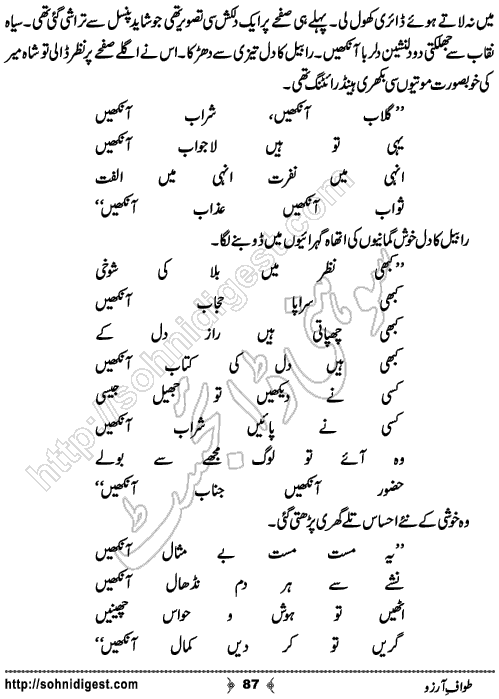 میں نہ لاتے ہوئے ڈائری کھول لی۔ پہلے ہی صفحے پر ایک دلکش سی تصویر تھی جو شاید پنسل سے تراشی گئی تھی۔ سیاہ
نقاب سے جھلکتی دو دلنشین دلربا آنکھیں۔ رابیل کا دل تیزی سے دھڑکا۔ اس نے اگلے صفحے پر نظر ڈالی تو شاہ میر
کی خوبصورت موتیوں سی بکھری ہینڈ رائٹنگ تھی۔
’’گلاب آنکھیں، شراب آنکھیں
یہی تو ہیں لاجواب آنکھیں
انہی میں نفرت انہی میں الفت
ثواب آنکھیں عذاب آنکھیں‘‘
رابیل کا دل خوش گمانیوں کی اتھاہ گہرائیوں میں ڈوبنے لگا۔
’’کبھی نظر میں بلا کی شوخی
کبھی سراپا حجاب آنکھیں
کبھی چھپاتی ہیں راز دل کے
کبھی ہیں دل کی کتاب آنکھیں
کسی نے دیکھیں تو جھیل جیسی
کسی نے پائیں شراب آنکھیں
وہ آئے تو لوگ مجھے سے بولے
حضور آنکھیں جناب آنکھیں‘‘
وہ خوشی کے نئے احساس تلے گھری پڑھتی گئی۔
’’یہ مست مست بے مثال آنکھیں
نشے سے ہر دم نڈھال آنکھیں
اٹھیں تو ہوش و حواس چھینیں
گریں تو کر دیں کمال آنکھیں‘‘
سوہنی ڈائجسٹ
http://sohnidigest.com
طواف آرزو
87
http://sohnidigest.com